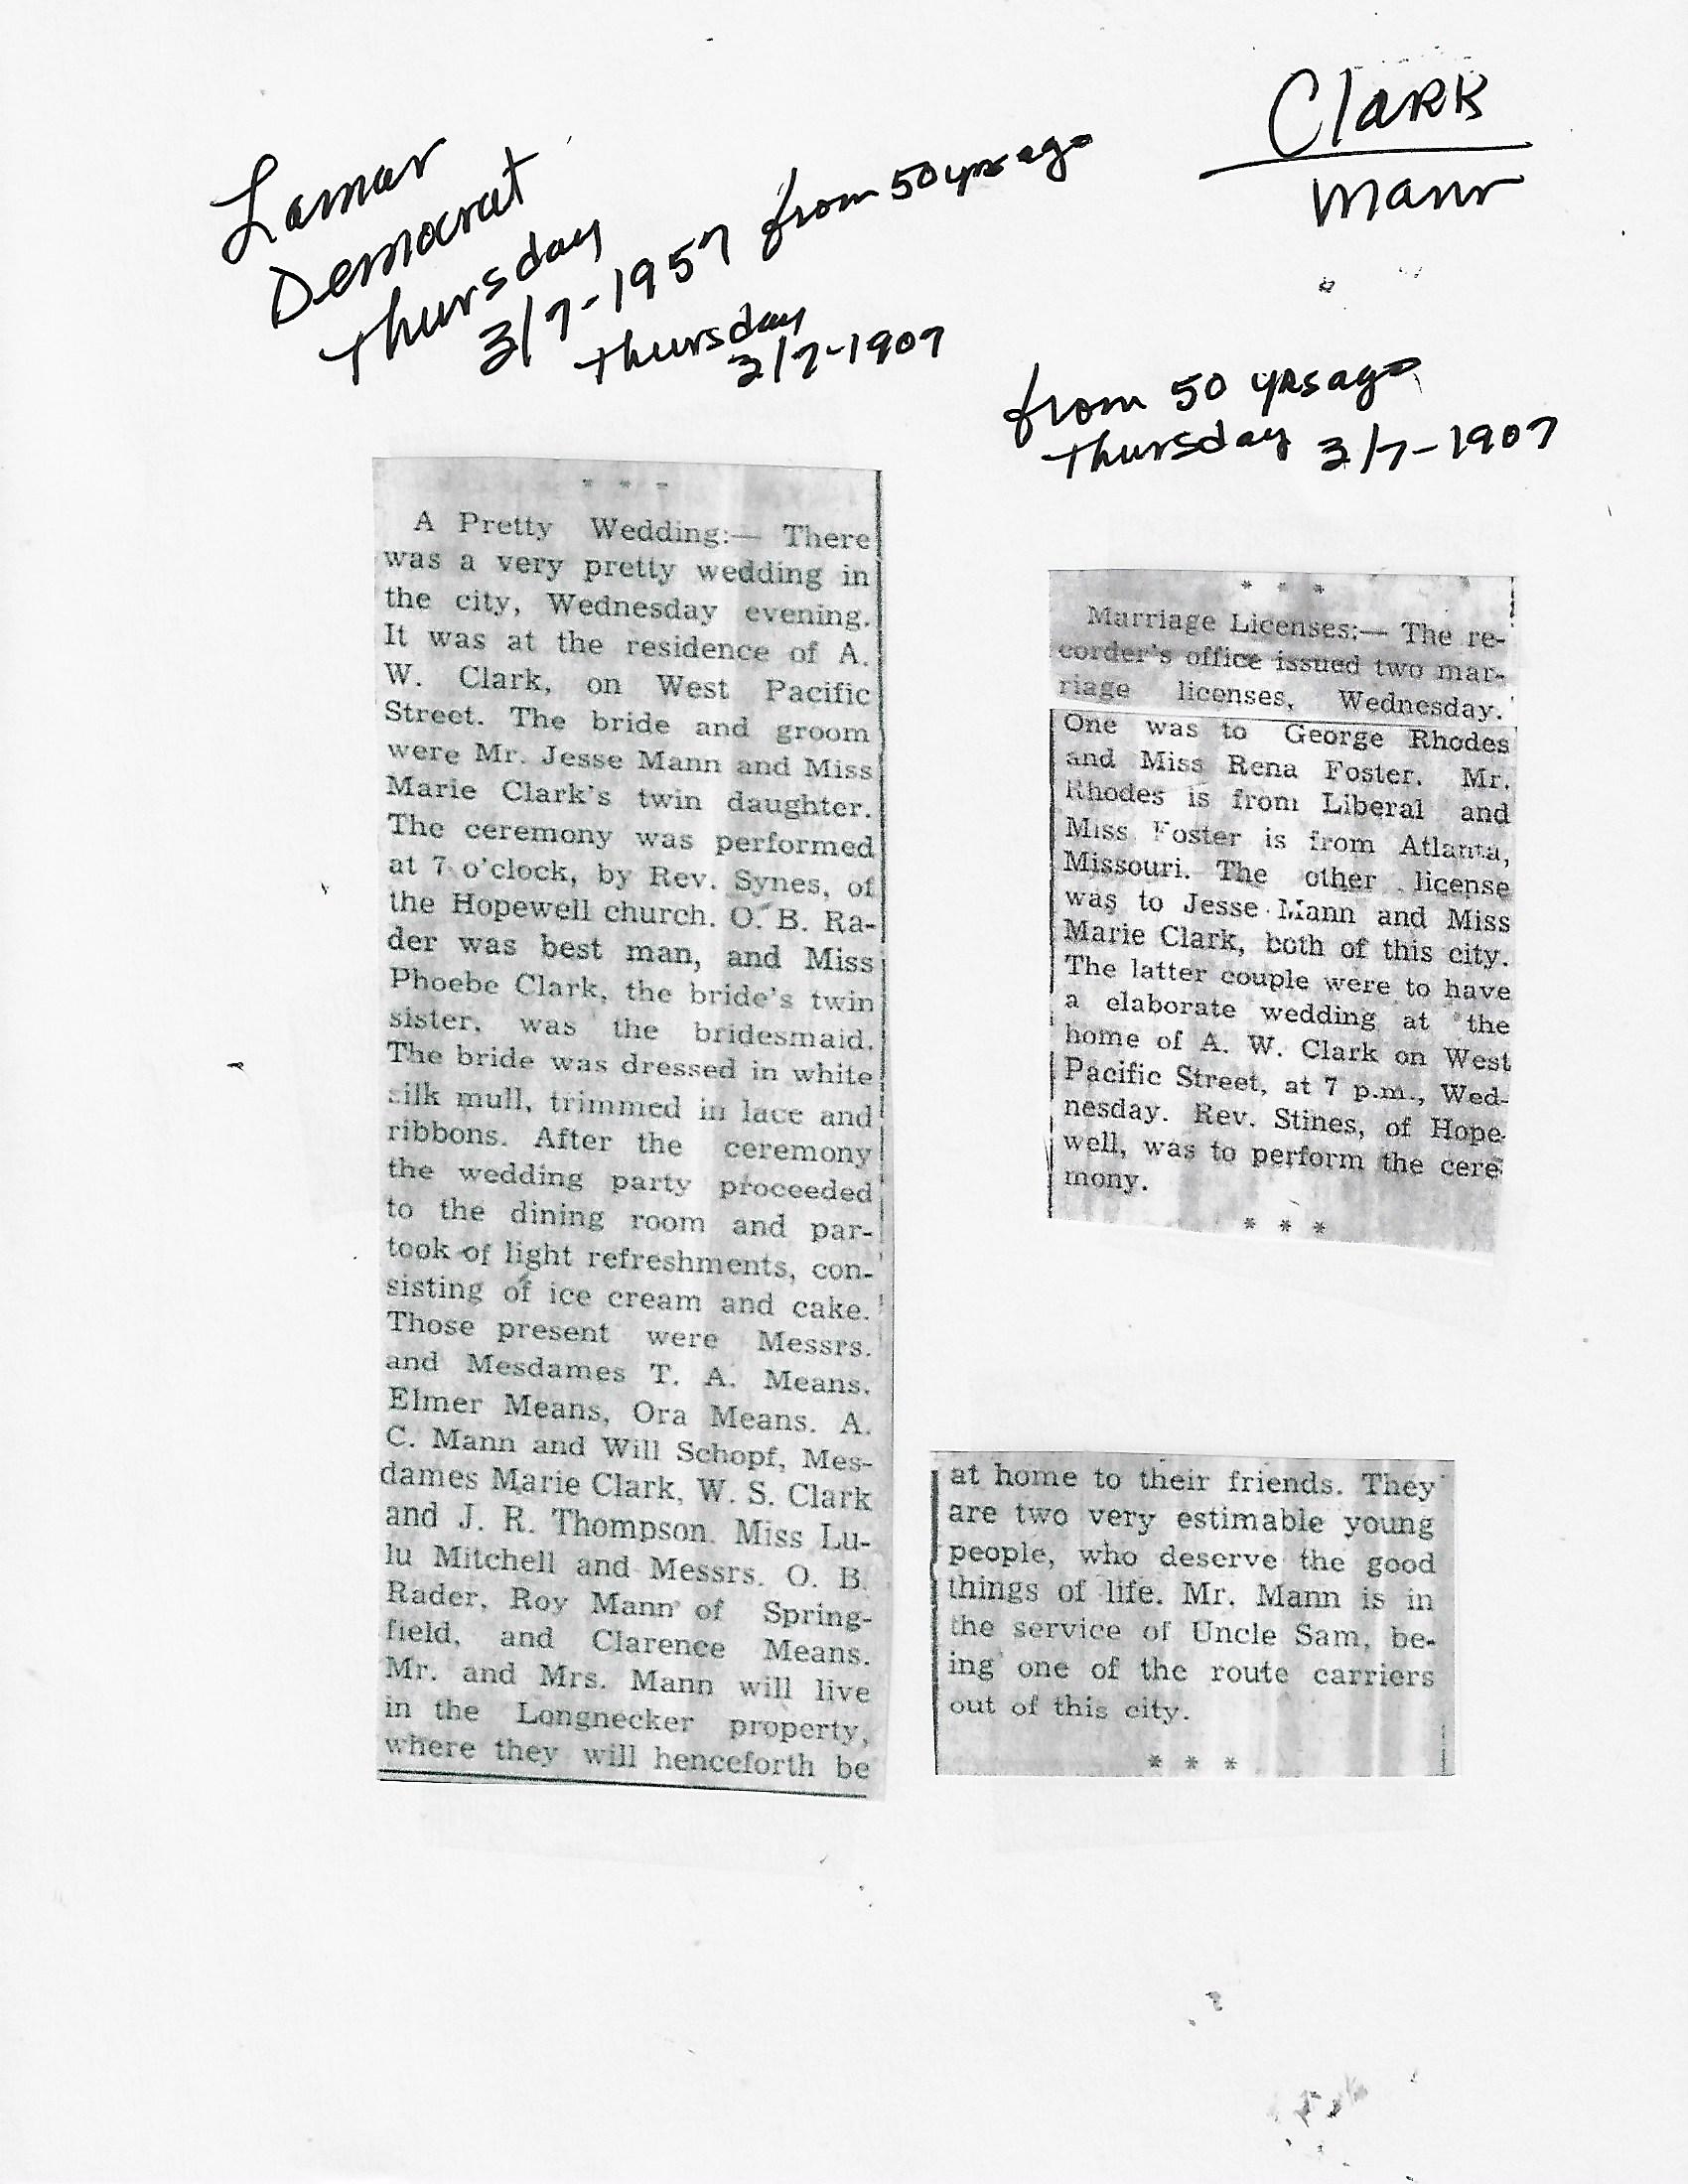 Clark
Mann
Lamar
Democrat
Thursday
3/7-1957 from 50 yrs ago
Thursday
3/7-1907
from 50 yrs ago
Thursday 3/7-1907
* * *
A Pretty Wedding:— There
was a very pretty wedding in
the city, Wednesday evening.
It was at the residence of A.
W. Clark, on West Pacific
Street. The bride and groom
were Mr. Jesse Mann and Miss
Marie Clark's twin daughter.
The ceremony was performed
at 7 o'clock, by Rev. Synes, of
the Hopewell church. O. B. Ra-
der was best man, and Miss
Phoebe Clark, the bride's twin
sister, was the bridesmaid.
The bride was dressed in white
silk mull, trimmed in lace and
ribbons. After the ceremony
the wedding party proceeded
to the dining room and par-
took of light refreshments, con-
sisting of ice cream and cake.
Those present were Messrs.
and Mesdames T. A. Means,
Elmer Means, Ora Means. A.
C. Mann and Will Schopf, Mes-
dames Marie Clark, W. S. Clark
and J. R. Thompson. Miss Lu-
lu Mitchell and Messrs. O. B.
Rader, Roy Mann of Spring-
field, and Clarence Means.
Mr. and Mrs. Mann will live
in the Longnecker property,
where they will henceforth be
at home to their friends. They
are two very estimable young
people, who deserve the good
things of life. Mr. Mann is in
the service of Uncle Sam, be-
ing one of the route carriers
out of this city.
* * *
* * *
Marriage Licenses:— The re-
corder's office issued two mar-
riage licenses, Wednesday.
One was to George Rhodes
and Miss Rena Foster. Mr.
Rhodes is from Liberal and
Miss Foster is from Atlanta,
Missouri. The other license
was to Jesse Mann and Miss
Marie Clark, both of this city.
The latter couple were to have
a elaborate wedding at the
home of A. W. Clark on West
Pacific Street, at 7 p.m., Wed-
nesday. Rev. Stines, of Hope-
well, was to perform the cere-
mony.
* * *